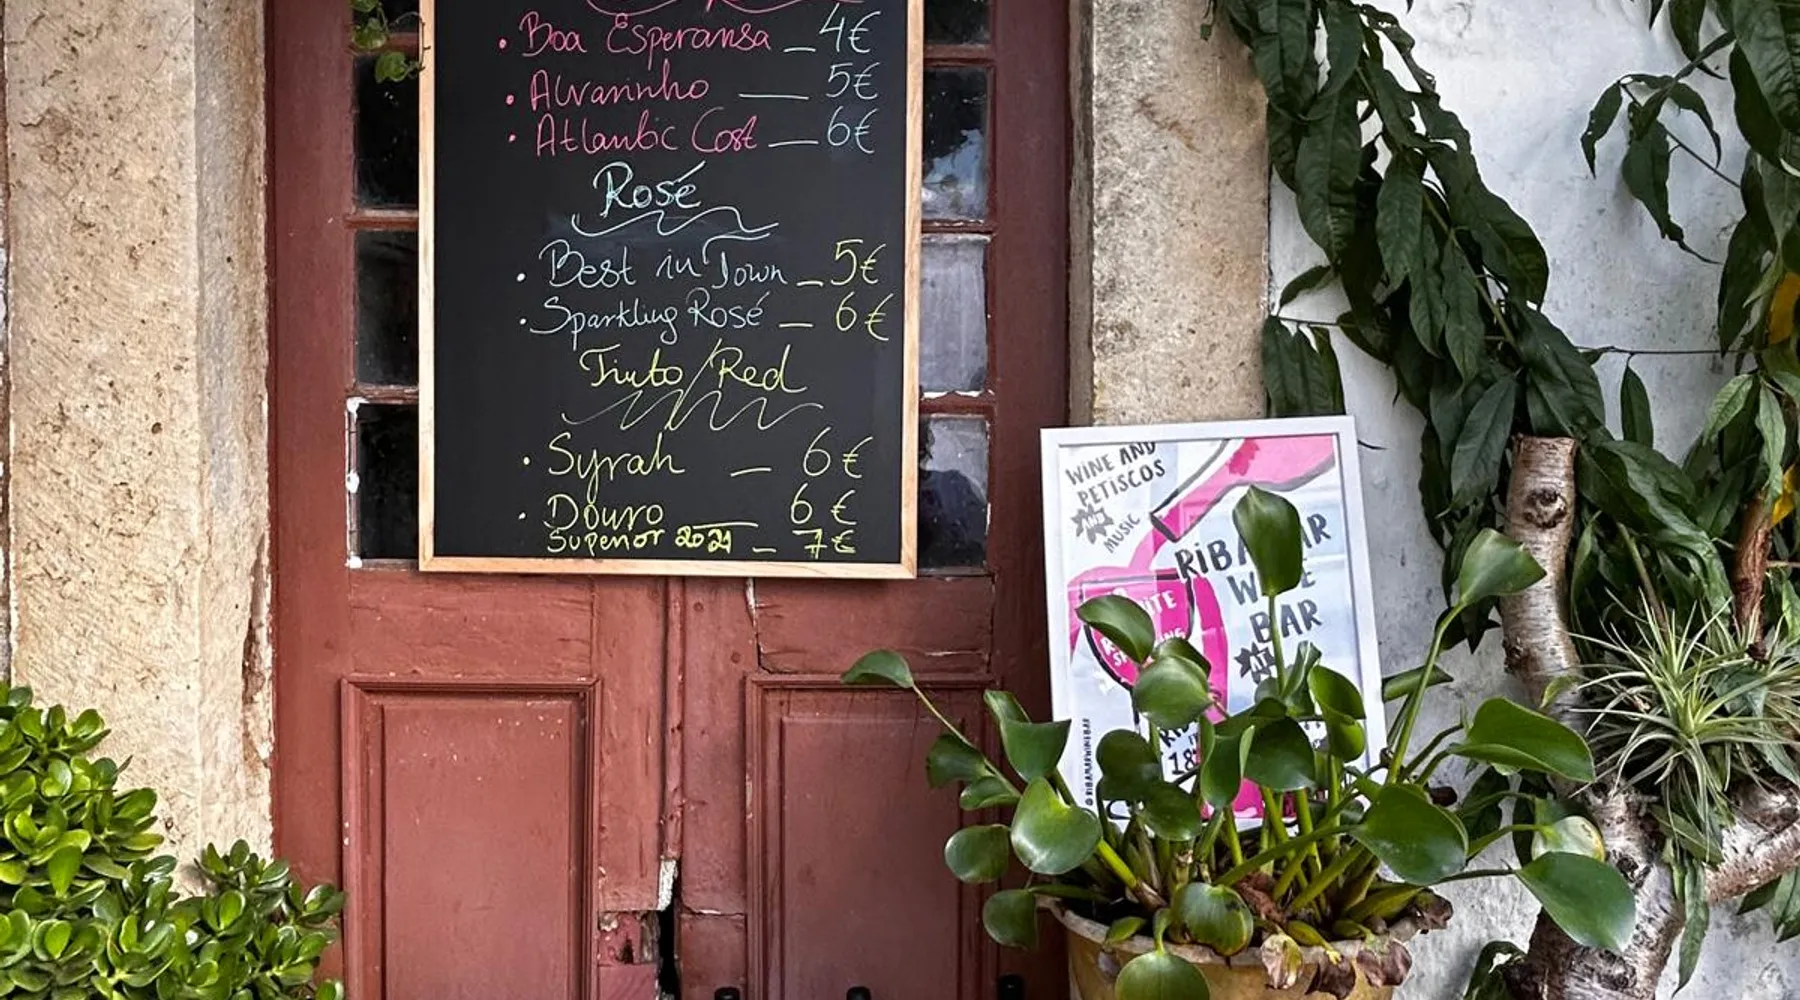 • Boa Esperansa _ 4€
• Alvarinho __ 5€
• Atlantic Cost __ 6€
Rosé
• Best in Town _ 5€
• Sparkling Rosé _ 6€
Tinto/Red
• Syrah _ 6€
• Douro __ 6€
Superior 2021 _ 7€
WINE AND
PETISCOS
AND
MUSIC
WINE
BAR
AT
18
@RIBAMARWINEBAR